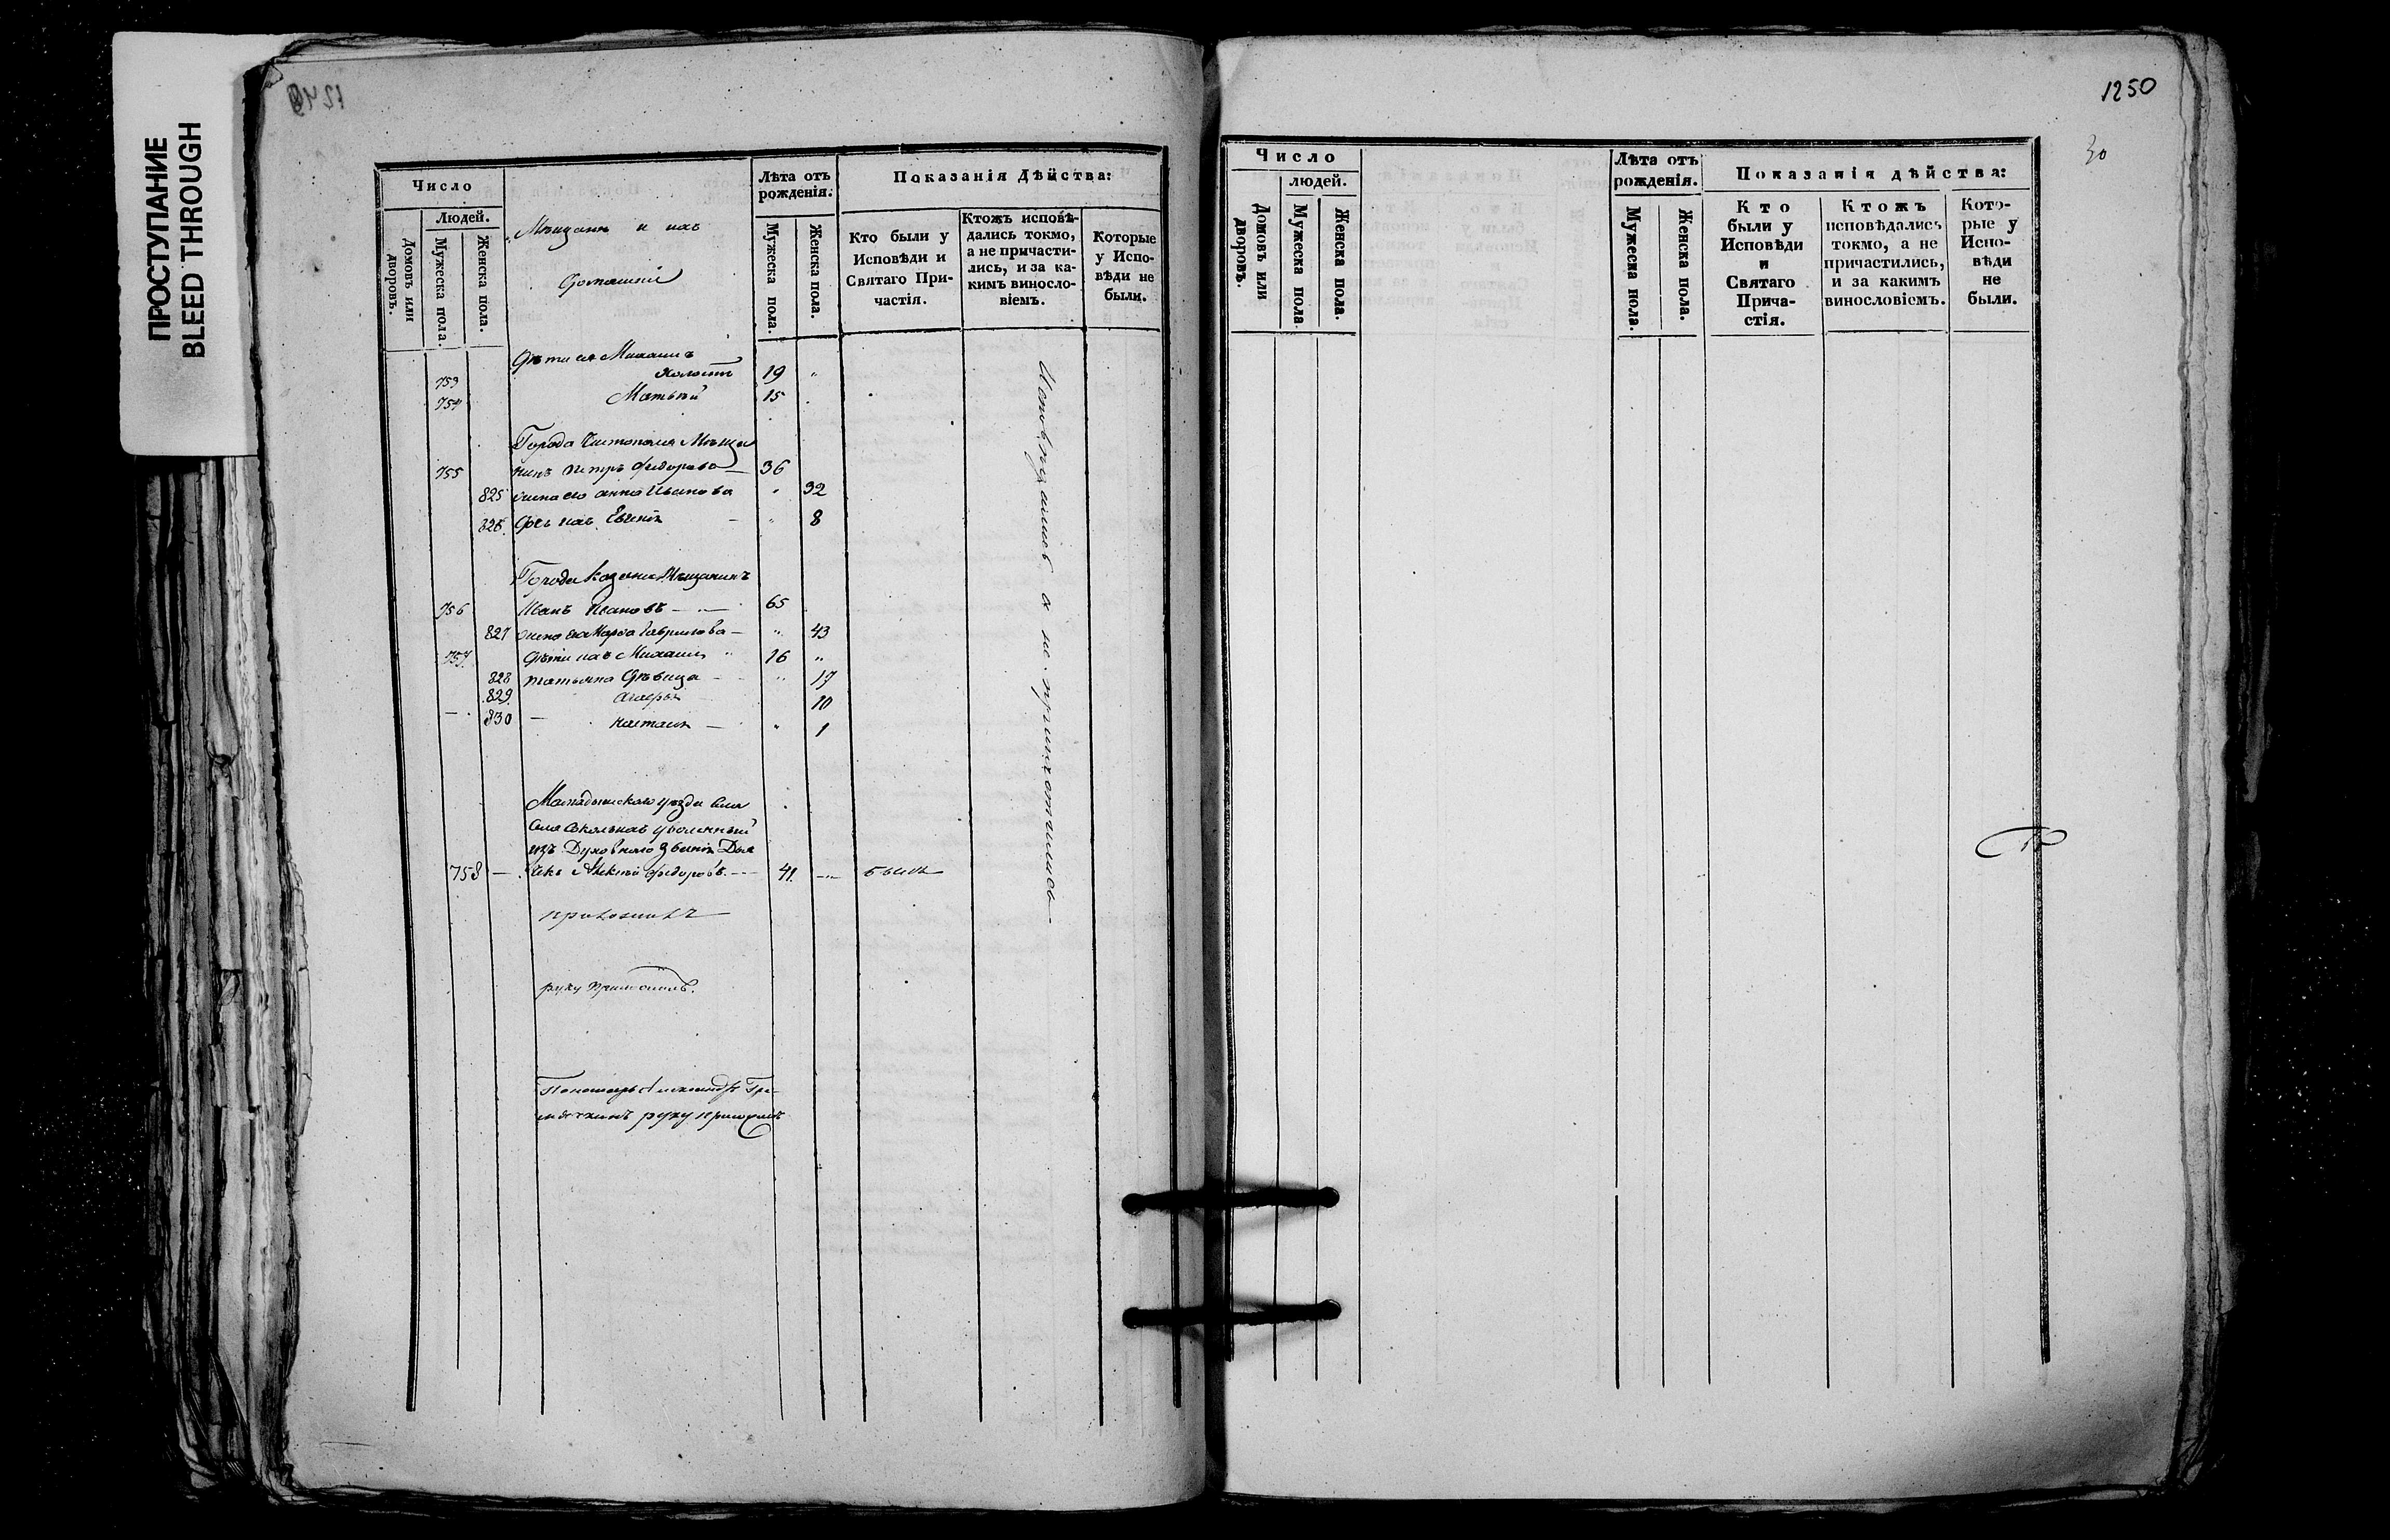 ПРОСТУПАНИЕ
BLEED THROUGH
1250
30
Число
Людей.
Домовъ или дворовъ.
Мужеска пола.
Женска пола.
Мѣщане и ихъ
Домашніе
Лѣта отъ рожденія.
Мужеска пола.
Женска пола.
Показанія Дѣйства:
Кто были у Исповѣди и Святаго Причастія.
Ктожъ исповѣдались токмо, а не причастились, и за какимъ винословіемъ.
Которые у Исповѣди не были.
Дѣти его Михаилъ
753 холостъ 19 "
754 Матвѣй 15
Города Чистополя Мѣща
755 нинъ Петръ Федоровъ — 36
825 жена его Анна Иванова " 32
826 Дочь ихъ Евгенія — " 8
Города Казани Мѣщанинъ
756 Иванъ Ивановъ — 65
827 жена его Марѳа Гаврилова — " 43
757 Дѣти ихъ Михаилъ " 16 "
828 Татьяна Дѣвица — " 17
829 10
830 — Настасья — " 1
Исповѣдались а не причастились
Мамадышскаго уѣзда
Села уволенный
изъ Духовнаго званія Дья
758 — чекъ Алексѣй Федоровъ — 41 — былъ
руку приложилъ.
Пономарь Александръ
руку приложилъ
Число
людей.
Домовъ или дворовъ.
Мужеска пола
Женска пола.
Лѣта отъ рожденія.
Мужеска пола.
Женска пола.
Показанія дѣйства:
Кто были у Исповѣди и Святаго Причастія.
Ктожъ исповѣдались токмо, а не причастились, и за какимъ винословіемъ.
Которые у Исповѣди не были.